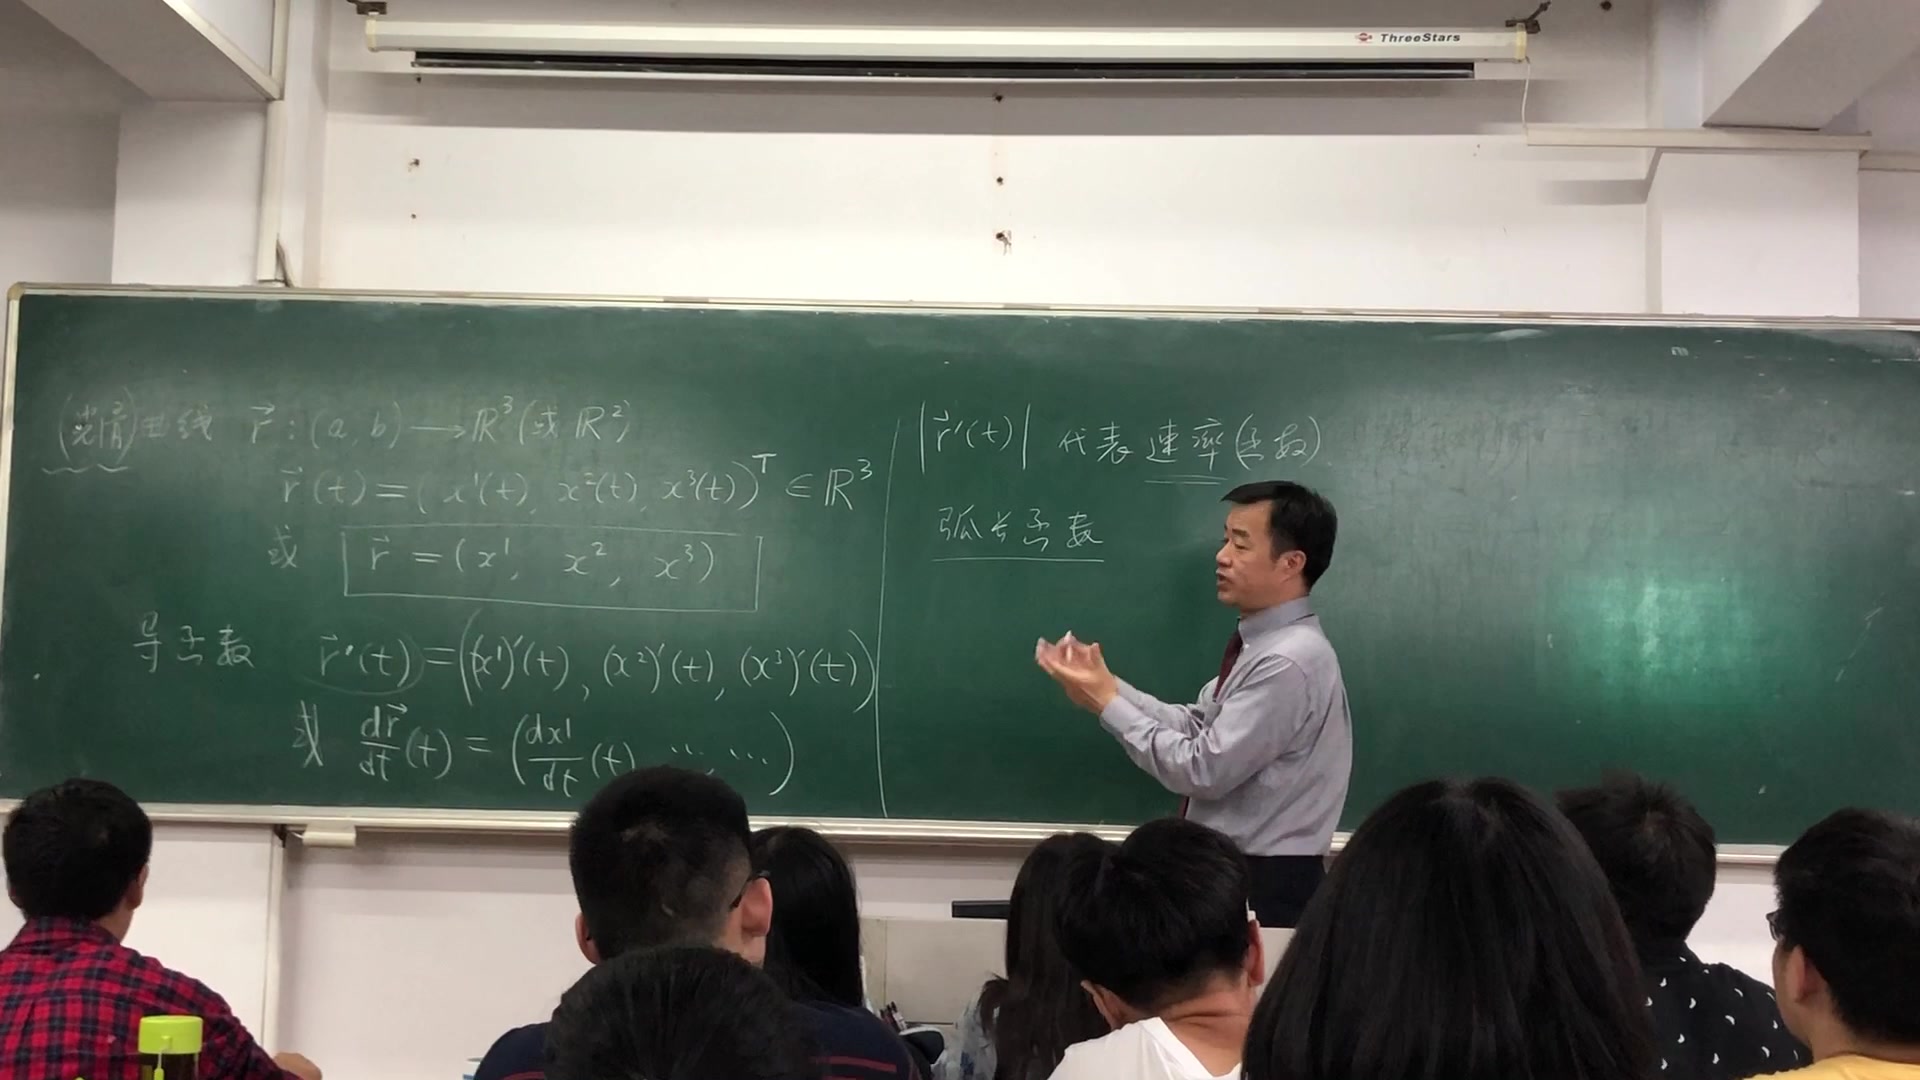 ThreeStars
(光滑)曲线 r⃗ : (a, b) → ℝ³ (或 ℝ²)
r⃗(t) = (x¹(t), x²(t), x³(t))ᵀ ∈ ℝ³
或 r⃗ = (x¹, x², x³)
导函数 r⃗′(t) = ((x¹)′(t), (x²)′(t), (x³)′(t))
或 dr⃗/dt (t) = (dx¹/dt (t), …, …)
|r⃗′(t)| 代表速率(函数)
弧长函数